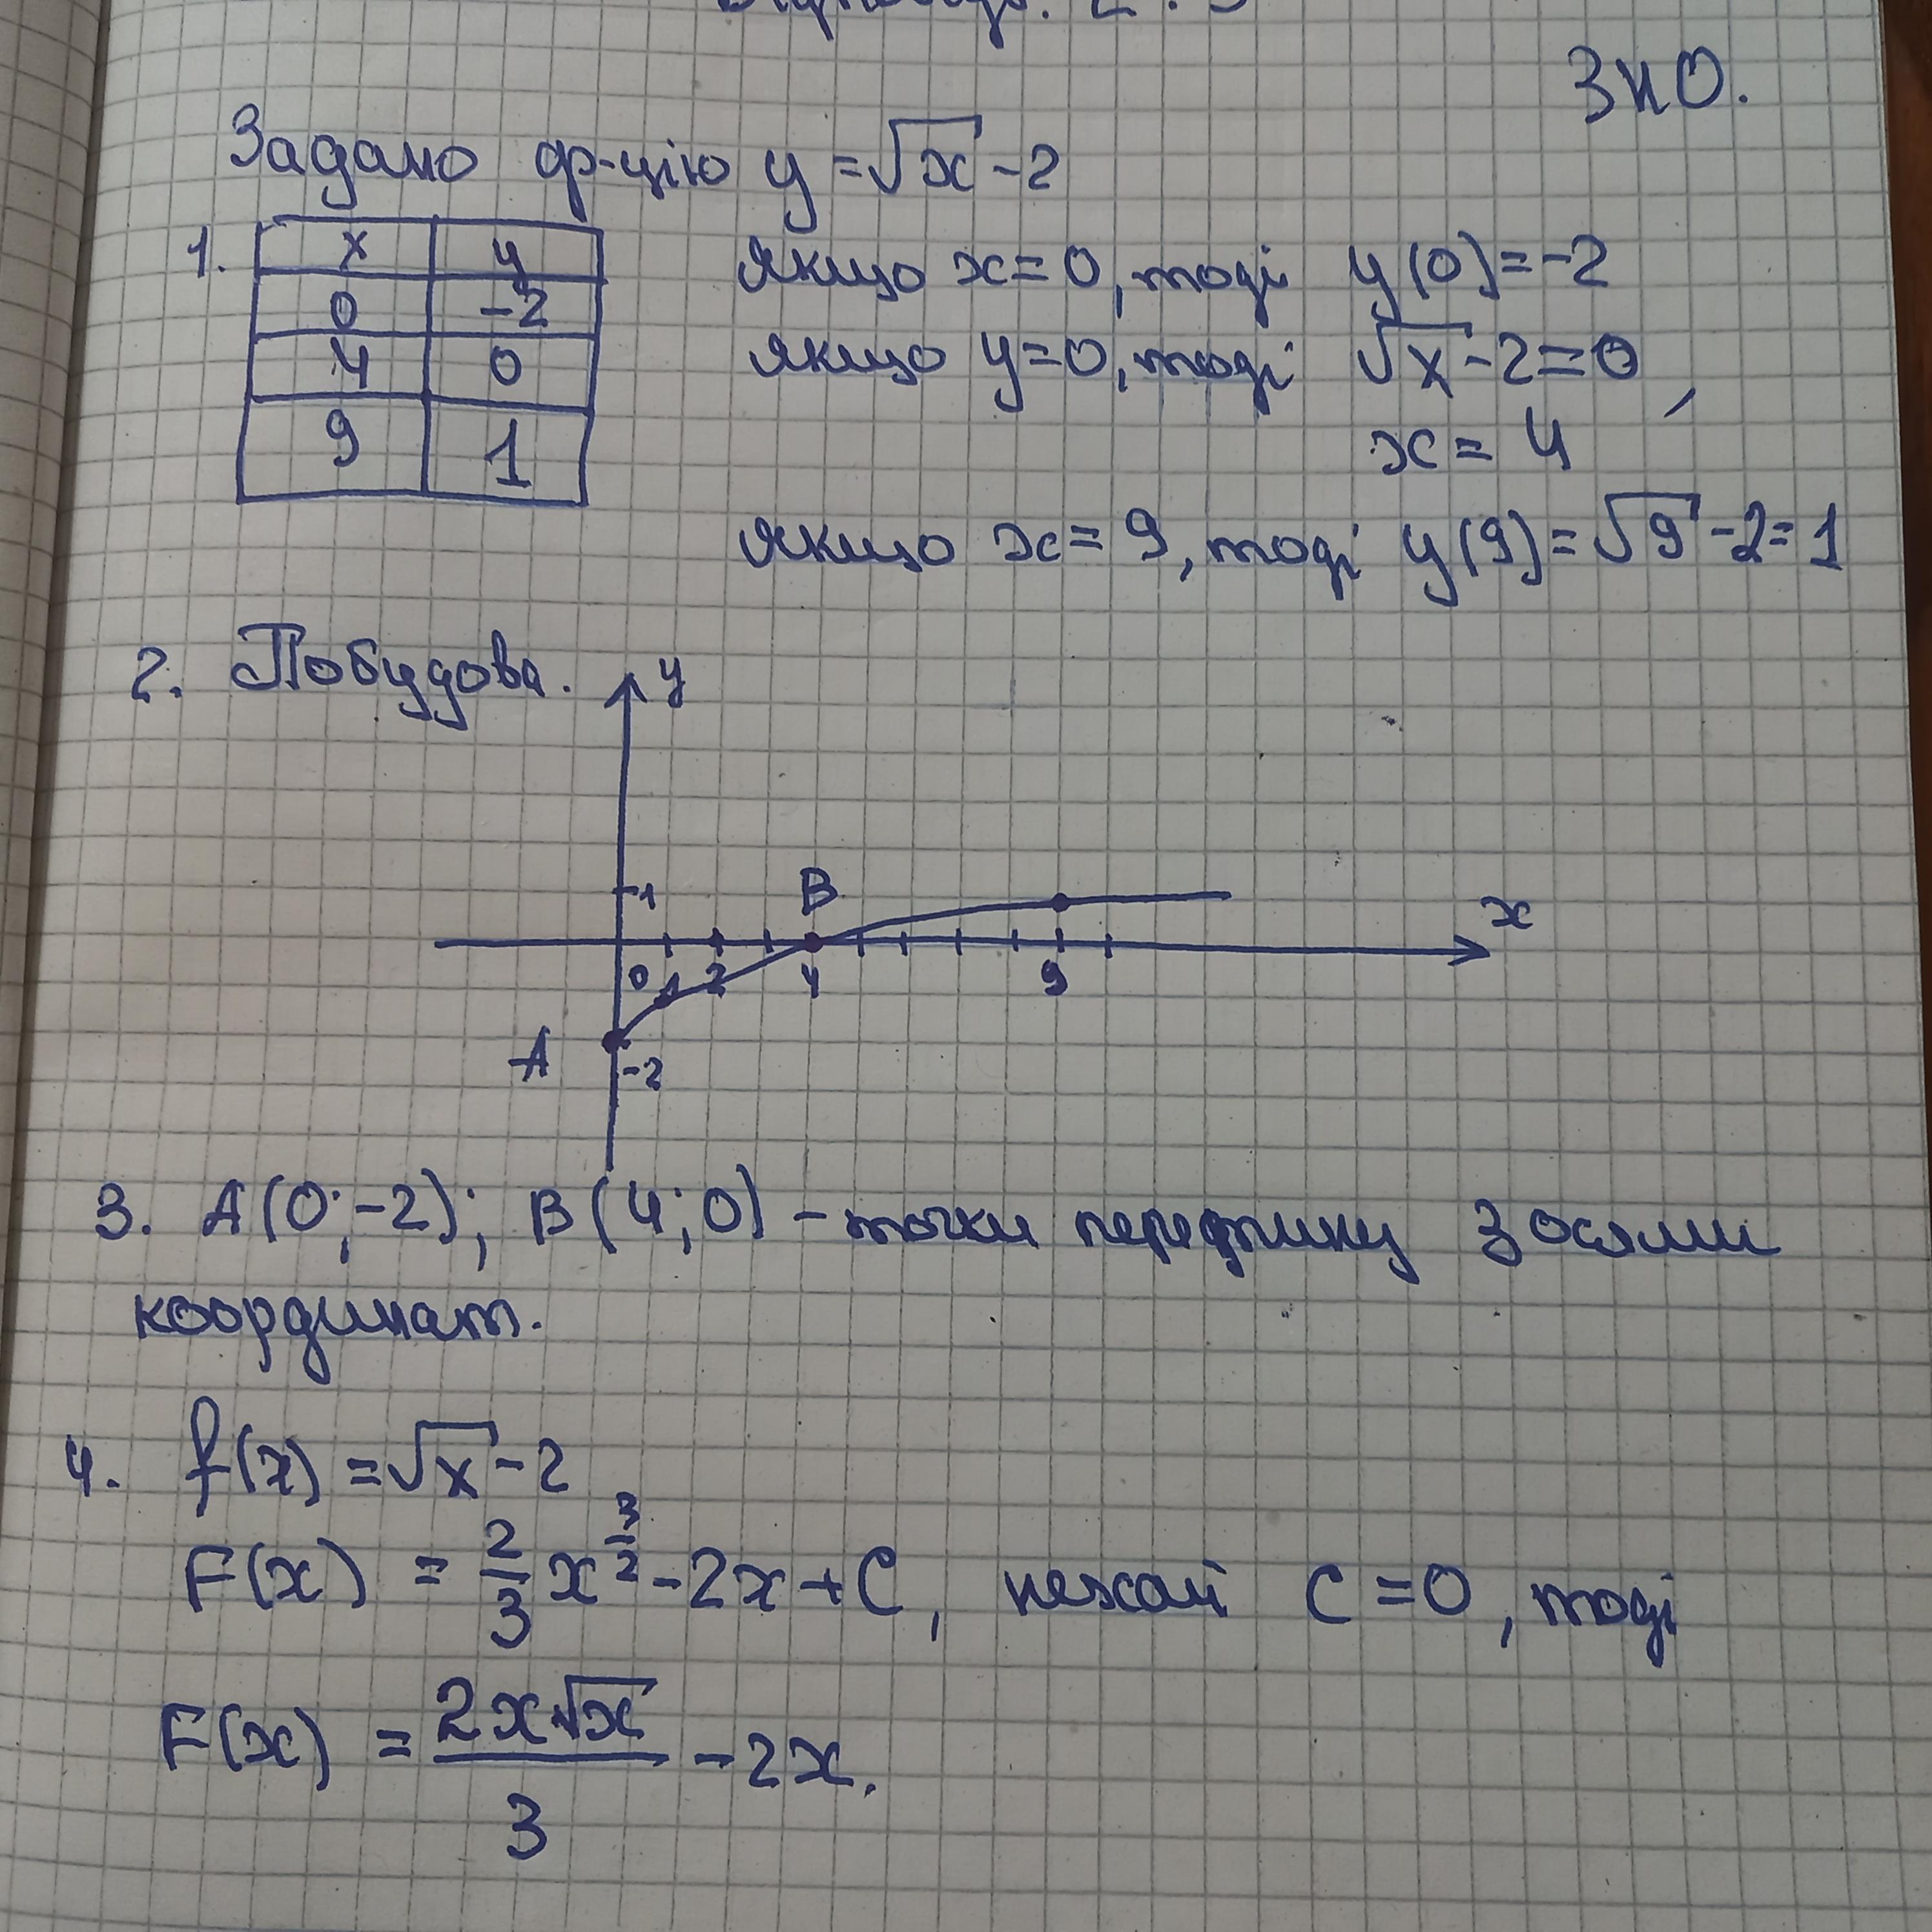 ЗНО.
Задано ф-цію y = √x - 2
1. x y
0 -2
4 0
9 1
якщо x = 0, тоді y(0) = -2
якщо y = 0, тоді √x - 2 = 0,
x = 4
якщо x = 9, тоді y(9) = √9 - 2 = 1
2. Побудова.
y
1
B
x
0 1 2 4 9
A
-2
3. A(0; -2); B(4; 0) - точки перетину з осями
координат.
4. f(x) = √x - 2
F(x) = 2/3 x^(3/2) - 2x + C, нехай C = 0, тоді
F(x) = 2x√x/3 - 2x.